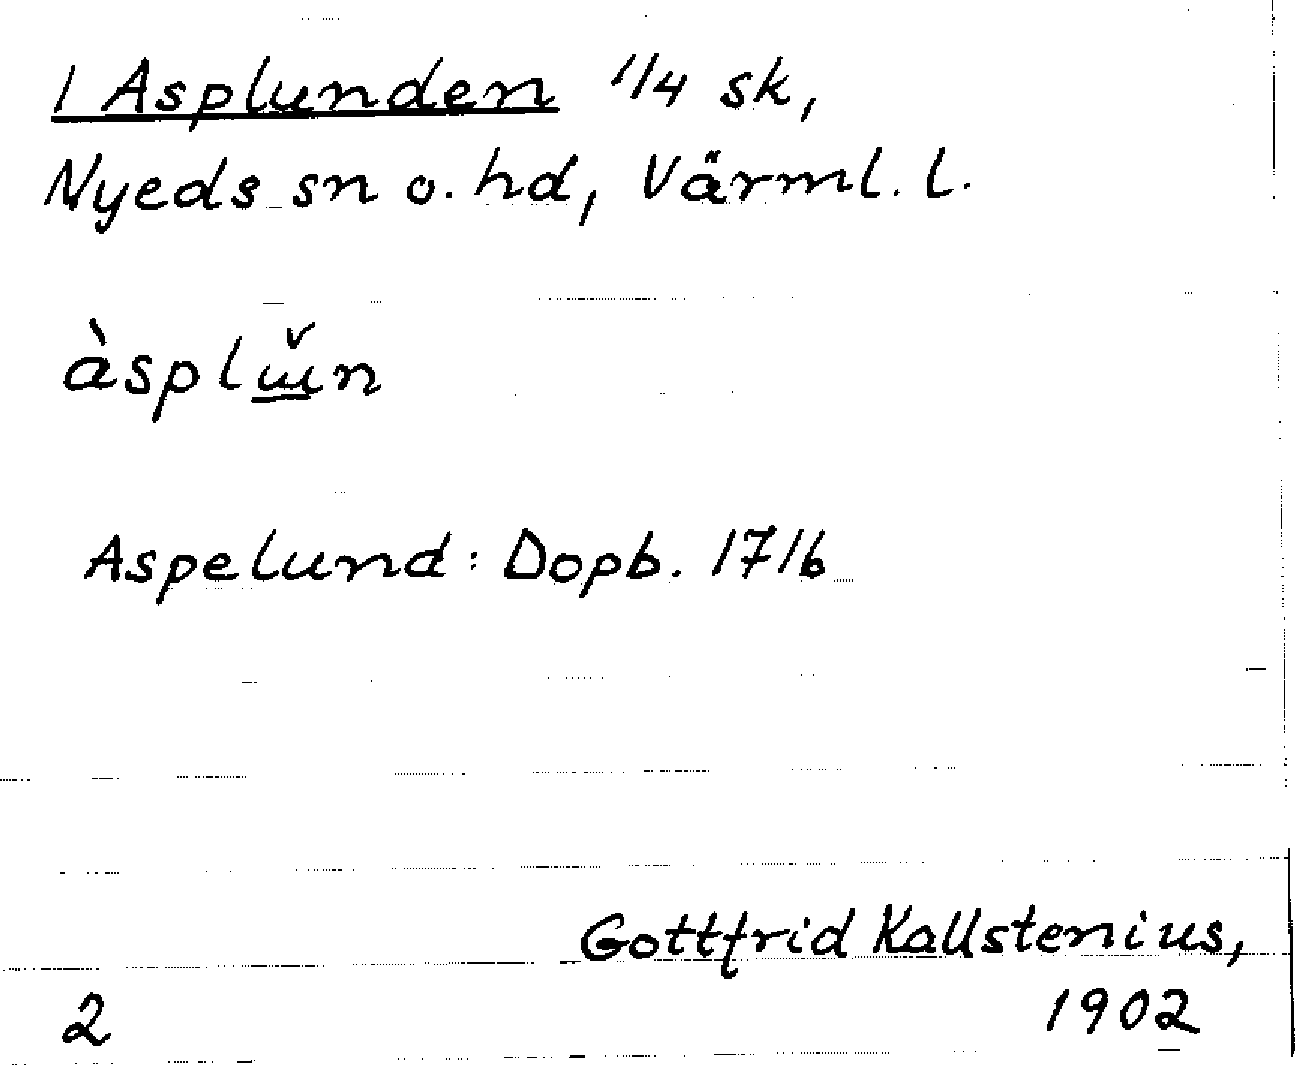 1 Asplunden 1/4 sk,
Nyeds sn o. hd, Värml. l.
Aspelund: Dopb. 1716
Gottfrid Kallstenius,
2 1902